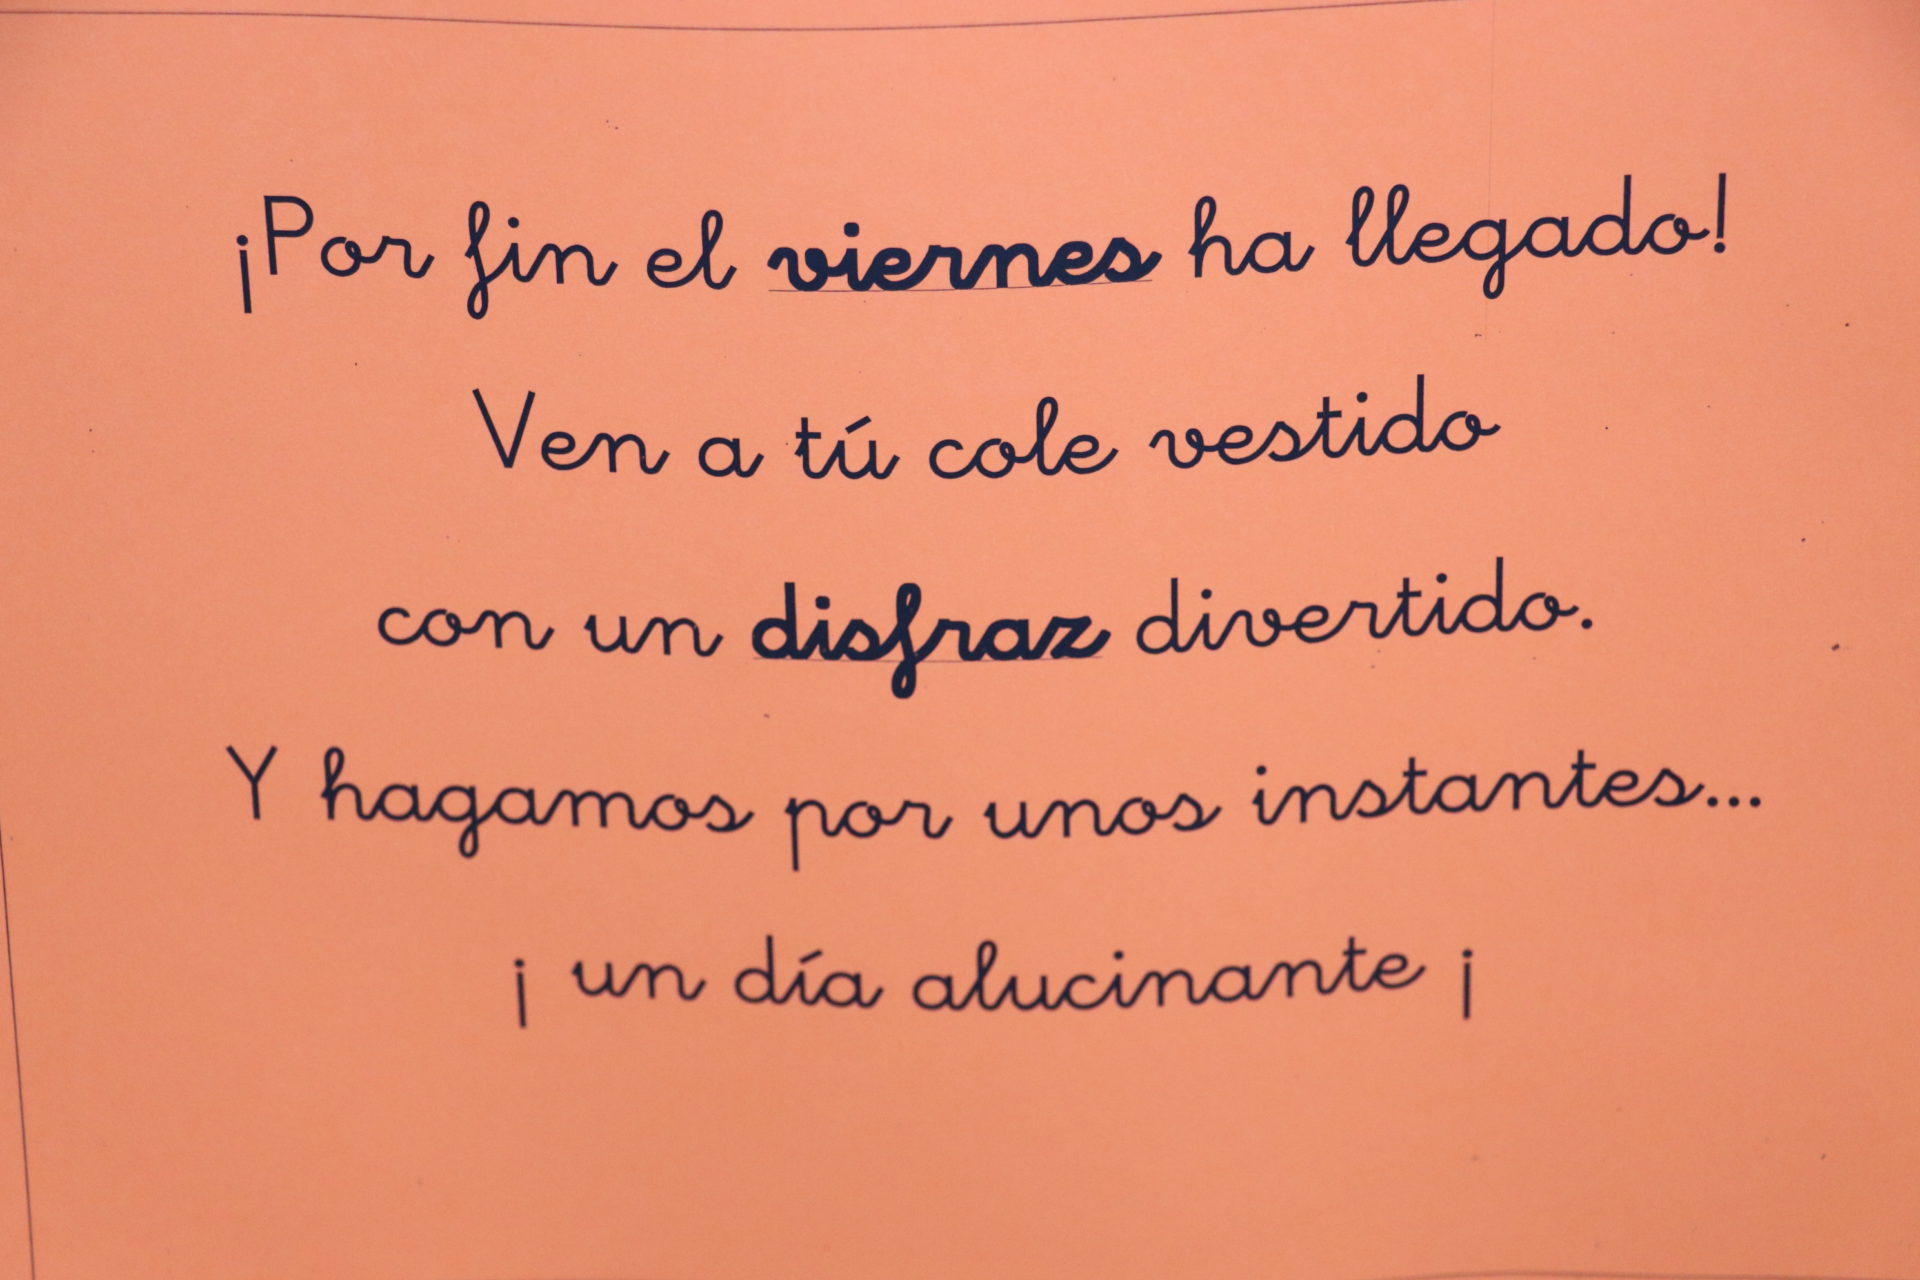 ¡Por fin el viernes ha llegado!
Ven a tú cole vestido
con un disfraz divertido.
Y hagamos por unos instantes...
¡ un día alucinante ¡